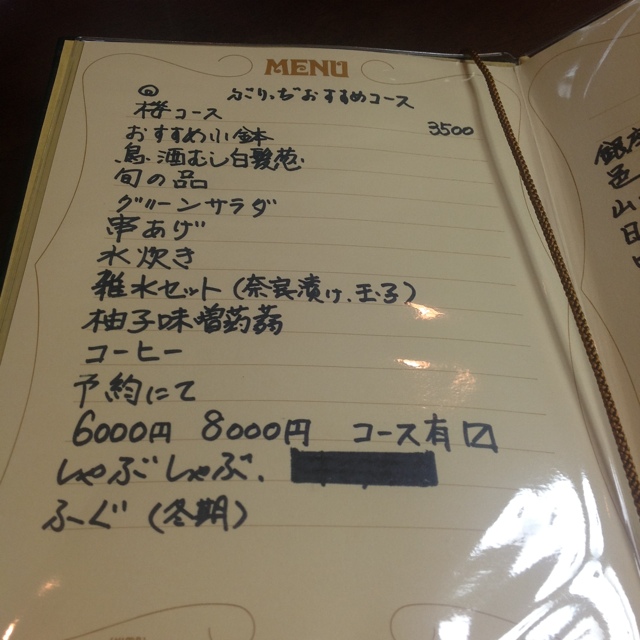 MENU
ぶりっぢおすすめコース
桜コース 3500
おすすめ小鉢
鳥酒むし白髪葱
旬の品
グリーンサラダ
串あげ
水炊き
雑水セット(奈良漬け、玉子)
柚子味噌蒟蒻
コーヒー
予約にて
6000円 8000円 コース有〼
しゃぶしゃぶ、
ふぐ(冬期)
山
日